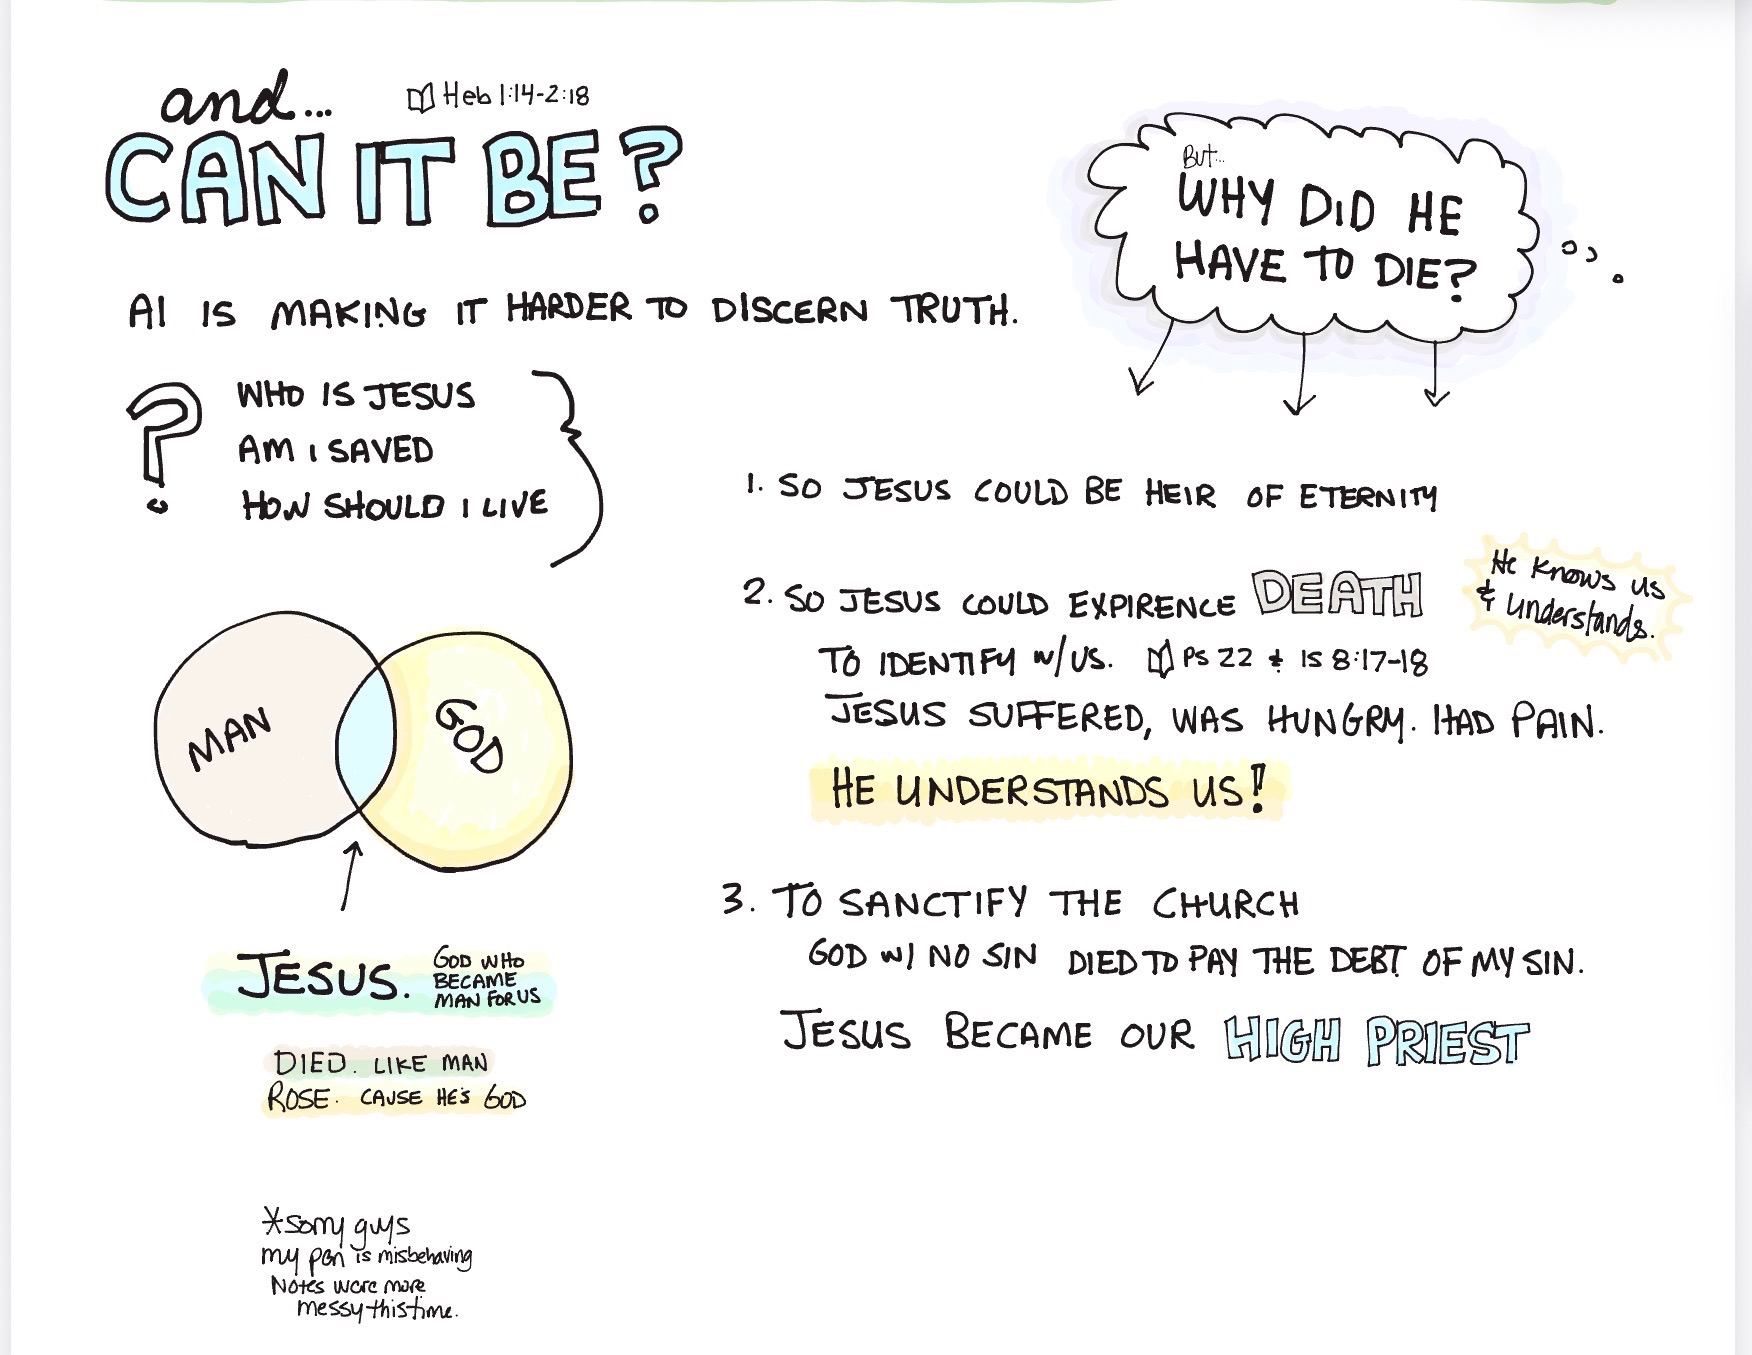 and...
Heb 1:14-2:18
CAN IT BE?
AI IS MAKING IT HARDER TO DISCERN TRUTH.
? WHO IS JESUS
AM I SAVED
HOW SHOULD I LIVE
MAN
GOD
JESUS. GOD WHO
BECAME
MAN FOR US
DIED. LIKE MAN
ROSE. CAUSE HE'S GOD
*sorry guys
my pen is misbehaving
Notes were more
messy this time.
But...
WHY DID HE
HAVE TO DIE?
1. SO JESUS COULD BE HEIR OF ETERNITY
2. SO JESUS COULD EXPIRENCE DEATH
TO IDENTIFY W/US. PS 22 & IS 8:17-18
He knows us
& understands.
JESUS SUFFERED, WAS HUNGRY. HAD PAIN.
HE UNDERSTANDS US!
3. TO SANCTIFY THE CHURCH
GOD W/ NO SIN DIED TO PAY THE DEBT OF MY SIN.
JESUS BECAME OUR HIGH PRIEST